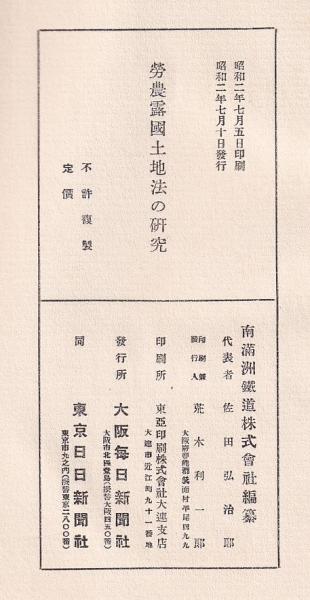 昭和二年七月五日印刷
昭和二年七月十日發行
勞農露國土地法の研究
不許複製
定價
南滿洲鐵道株式會社編纂
代表者 佐田弘治郎
印刷兼發行人 荒木利一郎
大阪府豐能郡箕面村平尾四九九
印刷所 東亞印刷株式會社大連支店
大連市近江町九十一番地
發行所 大阪每日新聞社
大阪市北區堂島(振替大阪四五〇番)
同 東京日日新聞社
東京市丸之內(振替東京二八〇〇番)